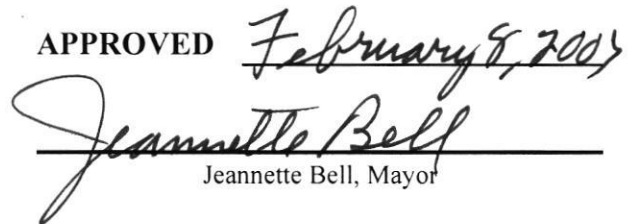 APPROVED February 8,
Jeannette Bell
Jeannette Bell, Mayor